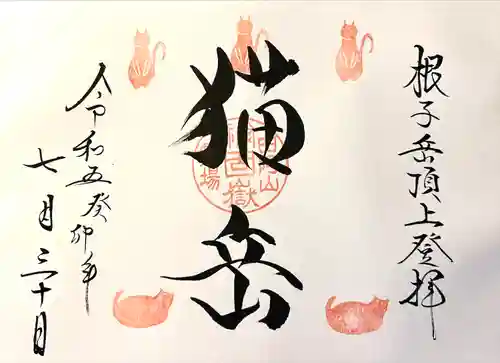 根子岳頂上登拝
猫岳
令和五癸卯年
七月三十日